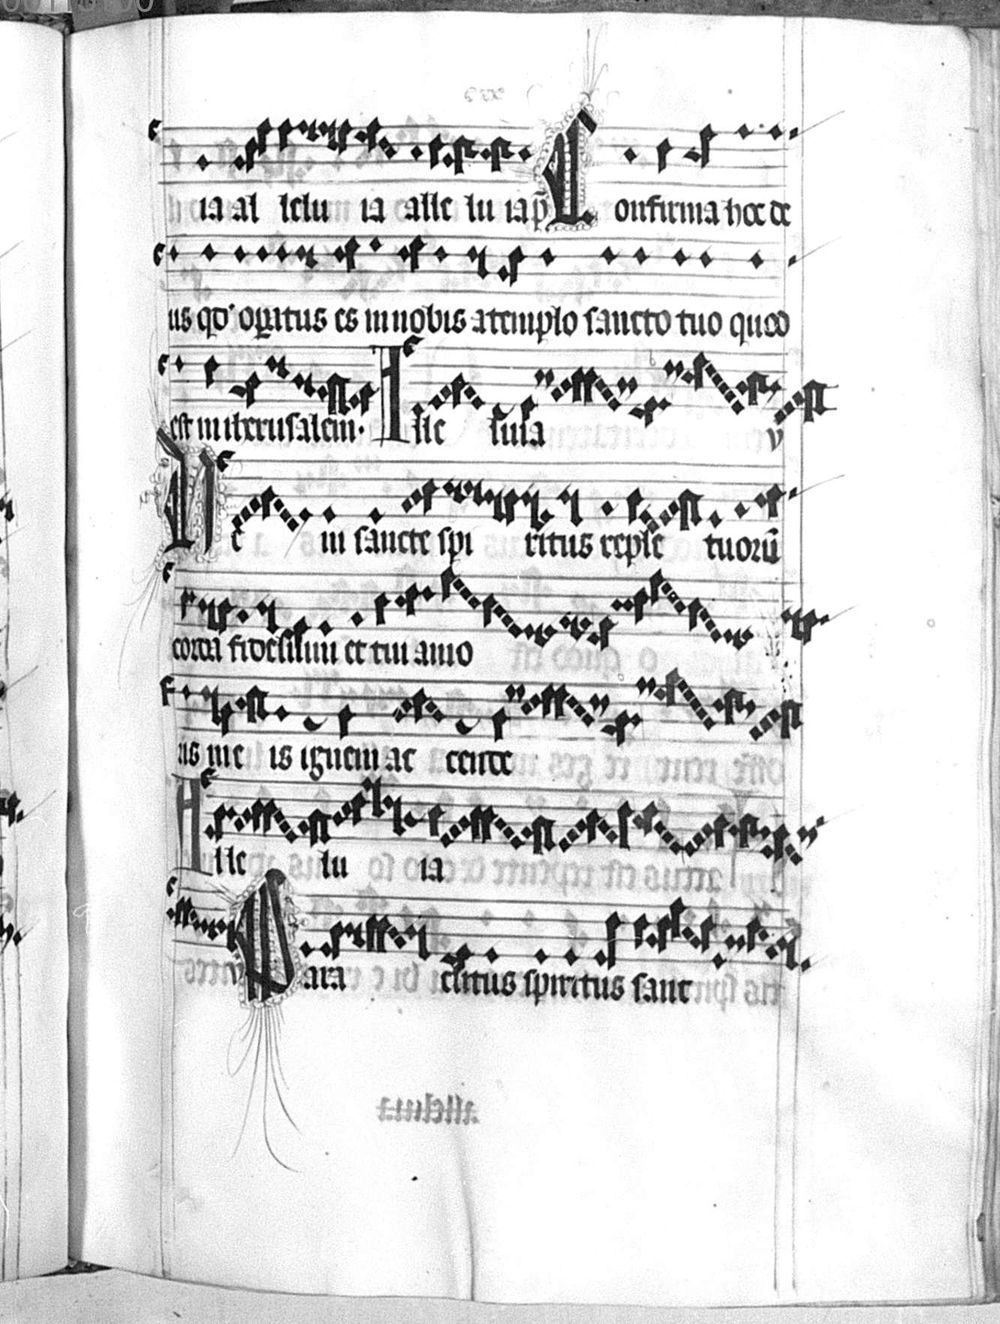 ia al lelu ia alle lu ia p̄ Confirma hoc de
us qd' opatus es in nobis a templo sancto tuo quod
est in iherusalem. Alle luia v
Ve ni sancte spi ritus reple tuorū
corda fidelium et tui amo
ris in e is ignem ac cende
Alle lu ia
Para clitus spiritus sanct